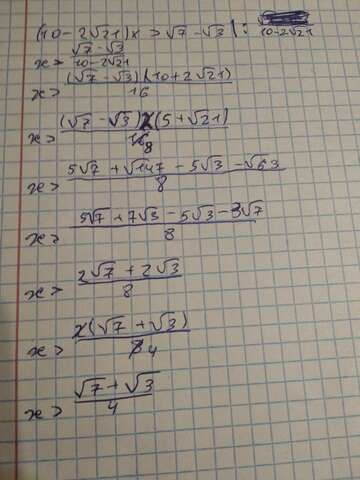 (10-2√21)x > √7-√3 | : 10-2√21
x > (√7-√3)/(10-2√21)
x > (√7-√3)(10+2√21)/16
x > (√7-√3)2(5+√21)/16 8
x > (5√7+√147-5√3-√63)/8
x > (5√7+7√3-5√3-3√7)/8
x > (2√7+2√3)/8
x > 2(√7+√3)/8 4
x > (√7+√3)/4